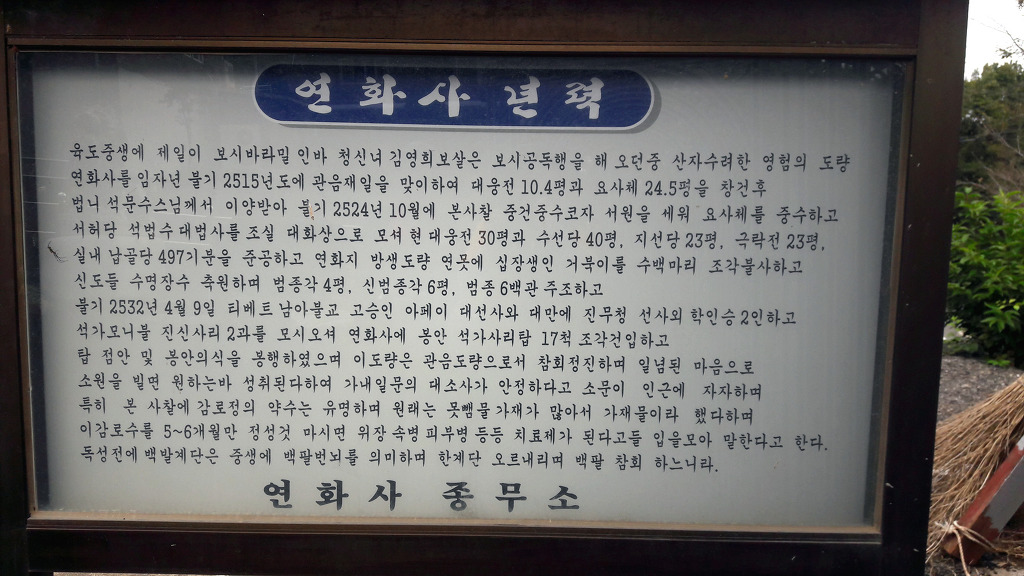 연화사 년력
육도중생에 제일이 보시바라밀 인바 청신녀 김영희보살은 보시공독행을 해 오던중 산자수려한 영험의 도량
연화사를 임자년 불기 2515년도에 관음재일을 맞이하여 대웅전 10.4평과 요사체 24.5평을 창건후
법니 석문수스님께서 이양받아 불기 2524년 10월에 본사찰 중건중수코자 서원을 세워 요사체를 중수하고
서허당 석법수대법사를 조실 대화상으로 모셔 현대웅전 30평과 수선당 40평, 지선당 23평, 극락전 23평,
실내 납골당 497기분을 준공하고 연화지 방생도량 연못에 십장생인 거북이를 수백마리 조각불사하고
신도들 수명장수 축원하며 범종각 4평, 신범종각 6평, 범종 6백관 주조하고
불기 2532년 4월 9일 티베트 남아불교 고승인 아페이 대선사와 대만에 진무청 선사외 학인승 2인하고
석가모니불 진신사리 2과를 모시오셔 연화사에 봉안 석가사리탑 17척 조각건입하고
탑 점안 및 봉안의식을 봉행하였으며 이도량은 관음도량으로서 참회정진하며 일념된 마음으로
소원을 빌면 원하는바 성취된다하여 가내일문의 대소사가 안정하다고 소문이 인근에 자자하며
특히 본 사찰에 감로정의 약수는 유명하며 원래는 못뺌물가재가 많아서 가재물이라 했다하며
이감로수를 5~6개월만 정성것 마시면 위장 속병 피부병 등등 치료제가 된다고들 입을모아 말한다고 한다.
독성전에 백발계단은 중생에 백팔번뇌를 의미하며 한계단 오르내리며 백팔 참회 하느니라.
연화사 종무소